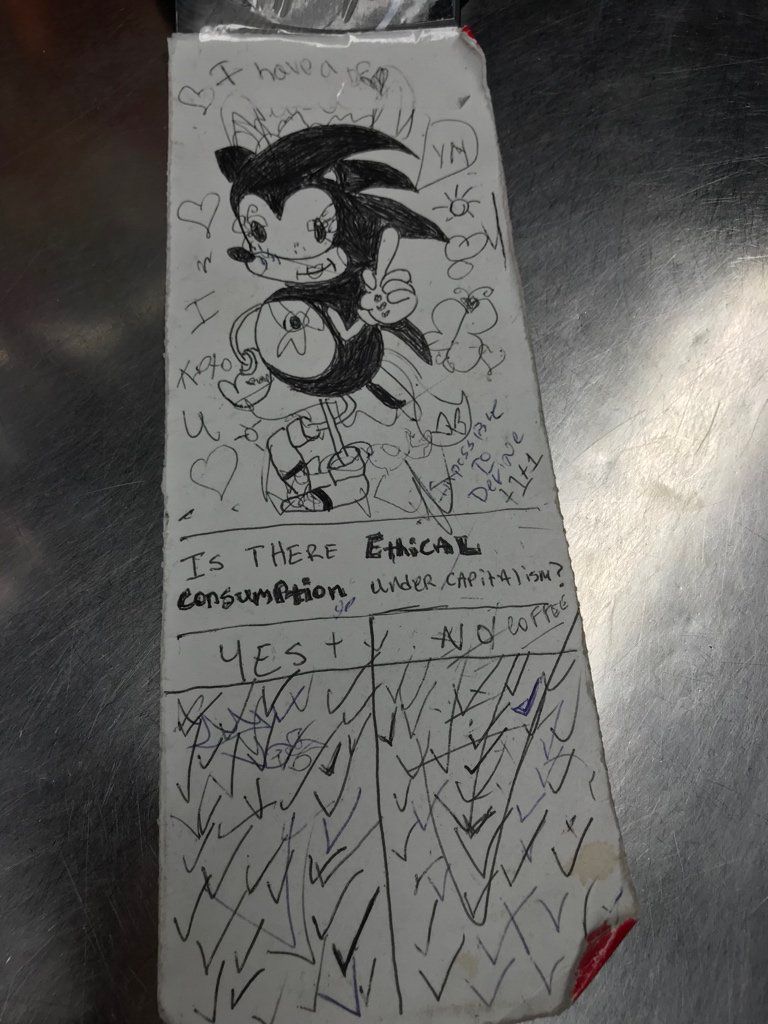 I have a
YN
IMPOSSIBLE
TO
DEFINE
+1+1
IS THERE EthiCAL
consumPtion under CAPitALism?
YES +
NO COFFEE